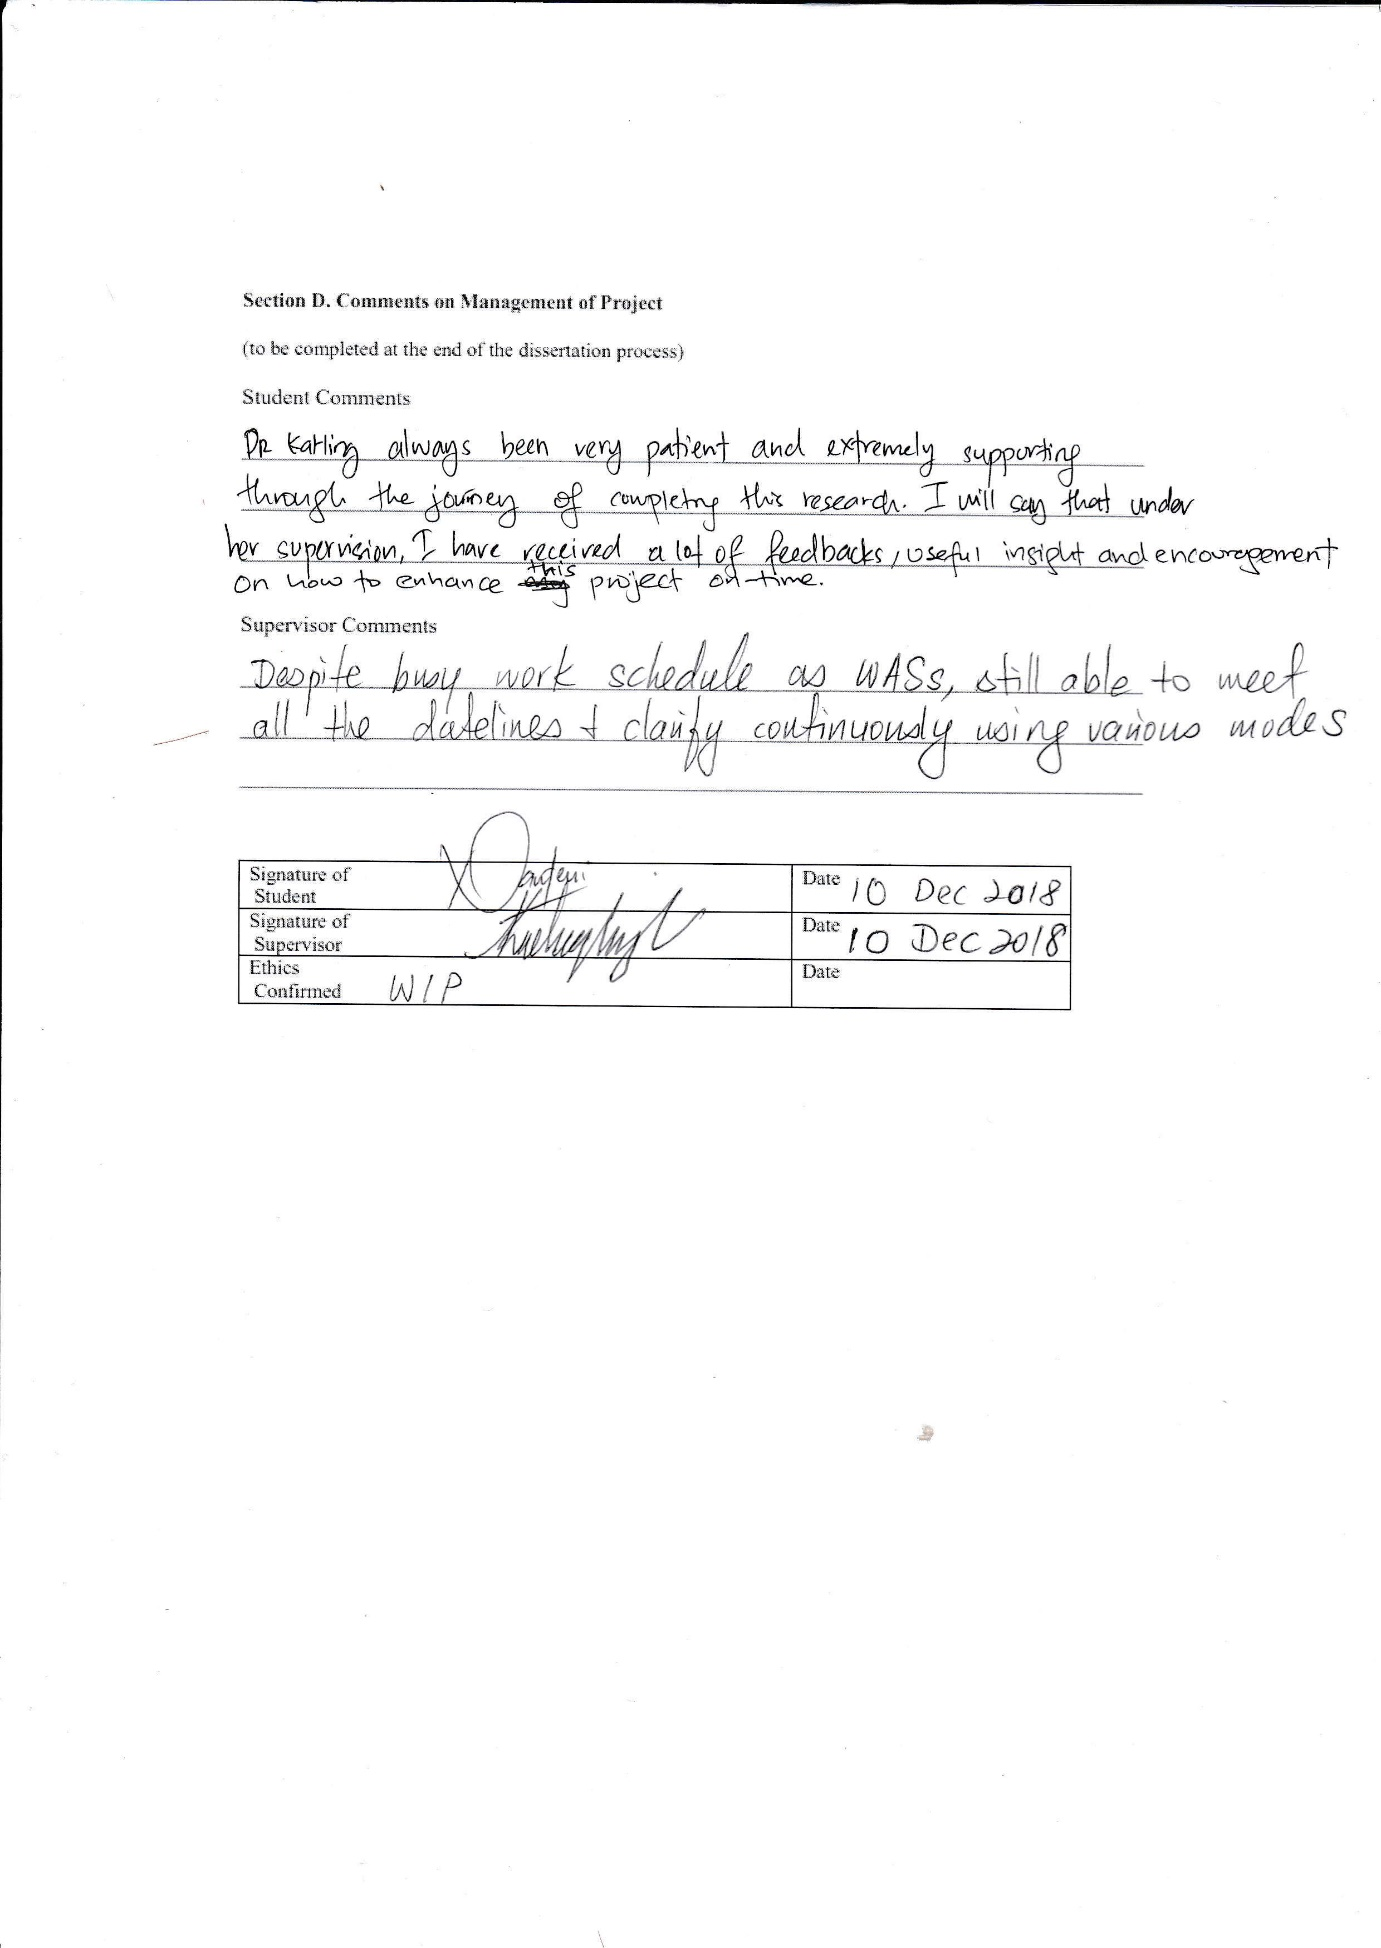 Section D. Comments on Management of Project
(to be completed at the end of the dissertation process)
Student Comments
DR Karling always been very patient and extremely supporting
through the journey of completing this research. I will say that under
her supervision, I have received a lot of feedbacks, useful insight and encouragement
on how to enhance this project on-time.
Supervisor Comments
Despite busy work schedule as WASs, still able to meet
all the datelines & clarify continuously using various modes
Signature of
Student
Date 10 Dec 2018
Signature of
Supervisor
Date 10 Dec 2018
Ethics
Confirmed WIP
Date